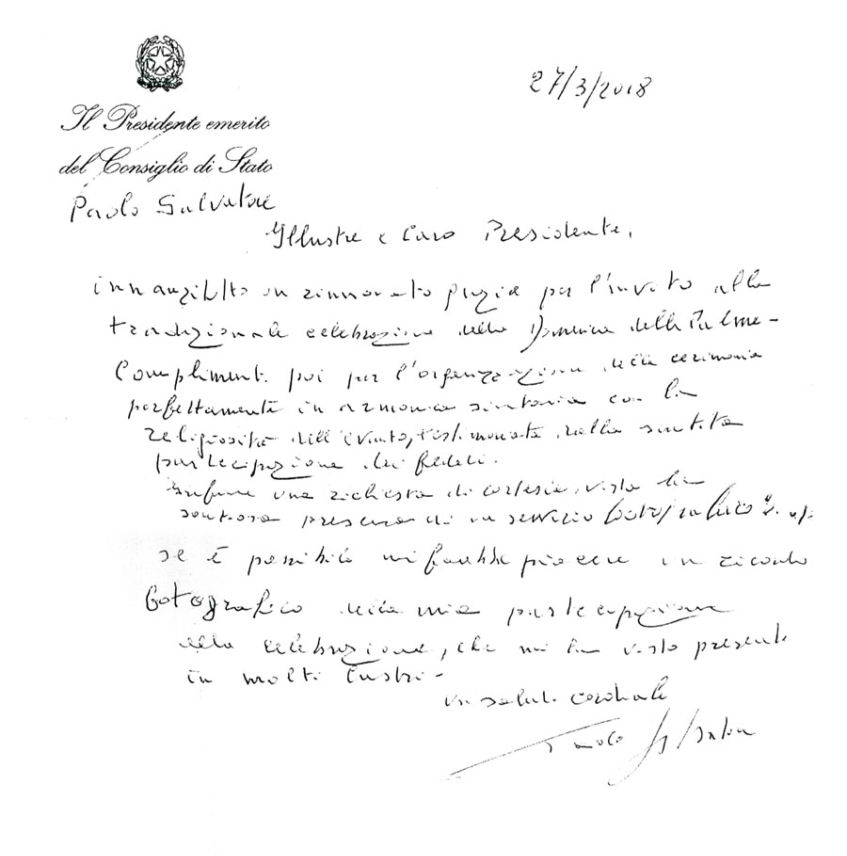 27/3/2018
Il Presidente emerito
del Consiglio di Stato
Paolo Salvatore
Illustre e Caro Presidente,
innanzitutto un rinnovato grazie per l'invito alla
tradizionale celebrazione della Domenica delle Palme-
Complimenti poi per l'organizzazione della cerimonia
perfettamente in armonica sintonia con la
religiosità dell'evento, testimoniata dalla sentita
partecipazione dei fedeli.
Infine una richiesta di cortesia, vista la
presenza di un servizio fotografico
se è possibile mi farebbe piacere un ricordo
fotografico della mia partecipazione
alla celebrazione, che mi ha visto presente
in molti lustri-
un saluto cordiale
Paolo Salvatore